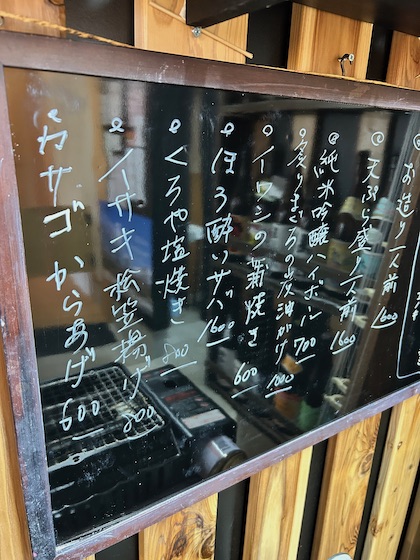 お造り一人前
天ぷら盛り一人前 1600
純米吟醸ハイボール 700
炙りまぐろの がけ 1000
イワシの 焼き 600
ほろ酔いサバ 1600
くろや塩焼き 800
イサキ松笠揚げ 800
カサゴからあげ 600